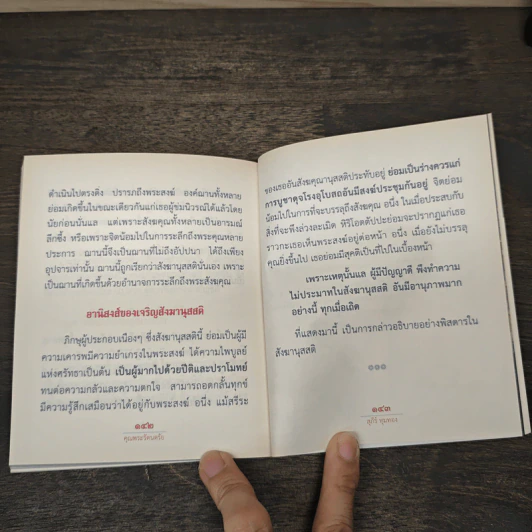 ดำเนินไปตรงดิ่ง ปรารภถึงพระสงฆ์ องค์ฌานทั้งหลาย
ย่อมเกิดขึ้นในขณะเดียวกันแก่เธอผู้ข่มนิวรณ์ได้แล้วโดย
นัยก่อนนั่นแล แต่เพราะสังฆคุณทั้งหลายเป็นอารมณ์
ลึกซึ้ง หรือเพราะจิตน้อมไปในการระลึกถึงพระคุณหลาย
ประการ ฌานนี้จึงเป็นฌานที่ไม่ถึงอัปปนา ได้ถึงเพียง
อุปจารเท่านั้น ฌานนี้ถูกเรียกว่าสังฆานุสสตินั่นเอง เพราะ
เป็นฌานที่เกิดขึ้นด้วยอำนาจการระลึกถึงพระสังฆคุณ
อานิสงส์ของเจริญสังฆานุสสติ
ภิกษุผู้ประกอบเนืองๆ ซึ่งสังฆานุสสตินี้ ย่อมเป็นผู้มี
ความเคารพมีความยำเกรงในพระสงฆ์ ได้ความไพบูลย์
แห่งศรัทธาเป็นต้น เป็นผู้มากไปด้วยปีติและปราโมทย์
ทนต่อความกลัวและความตกใจ สามารถอดกลั้นทุกข์
มีความรู้สึกเสมือนว่าได้อยู่กับพระสงฆ์ อนึ่ง แม้สรีระ
๑๔๒
คุณพระรัตนตรัย
ของเธออันสังฆคุณานุสสติประทับอยู่ ย่อมเป็นร่างควรแก่
การบูชาดุจโรงอุโบสถอันมีสงฆ์ประชุมกันอยู่ จิตย่อม
น้อมไปในการที่จะบรรลุถึงสังฆคุณ อนึ่ง ในเมื่อประสบกับ
สิ่งที่จะพึงล่วงละเมิด หิริโอตตัปปะย่อมจะปรากฏแก่เธอ
ราวกะเธอเห็นพระสงฆ์อยู่ต่อหน้า อนึ่ง เมื่อยังไม่บรรลุ
คุณยิ่งขึ้นไป เธอย่อมมีสุคติเป็นที่ไปในเบื้องหน้า
เพราะเหตุนั้นแล ผู้มีปัญญาดี พึงทำความ
ไม่ประมาทในสังฆานุสสติ อันมีอานุภาพมาก
อย่างนี้ ทุกเมื่อเถิด
ที่แสดงมานี้ เป็นการกล่าวอธิบายอย่างพิสดารใน
สังฆานุสสติ
๑๔๓
สุภีร์ ทุมทอง